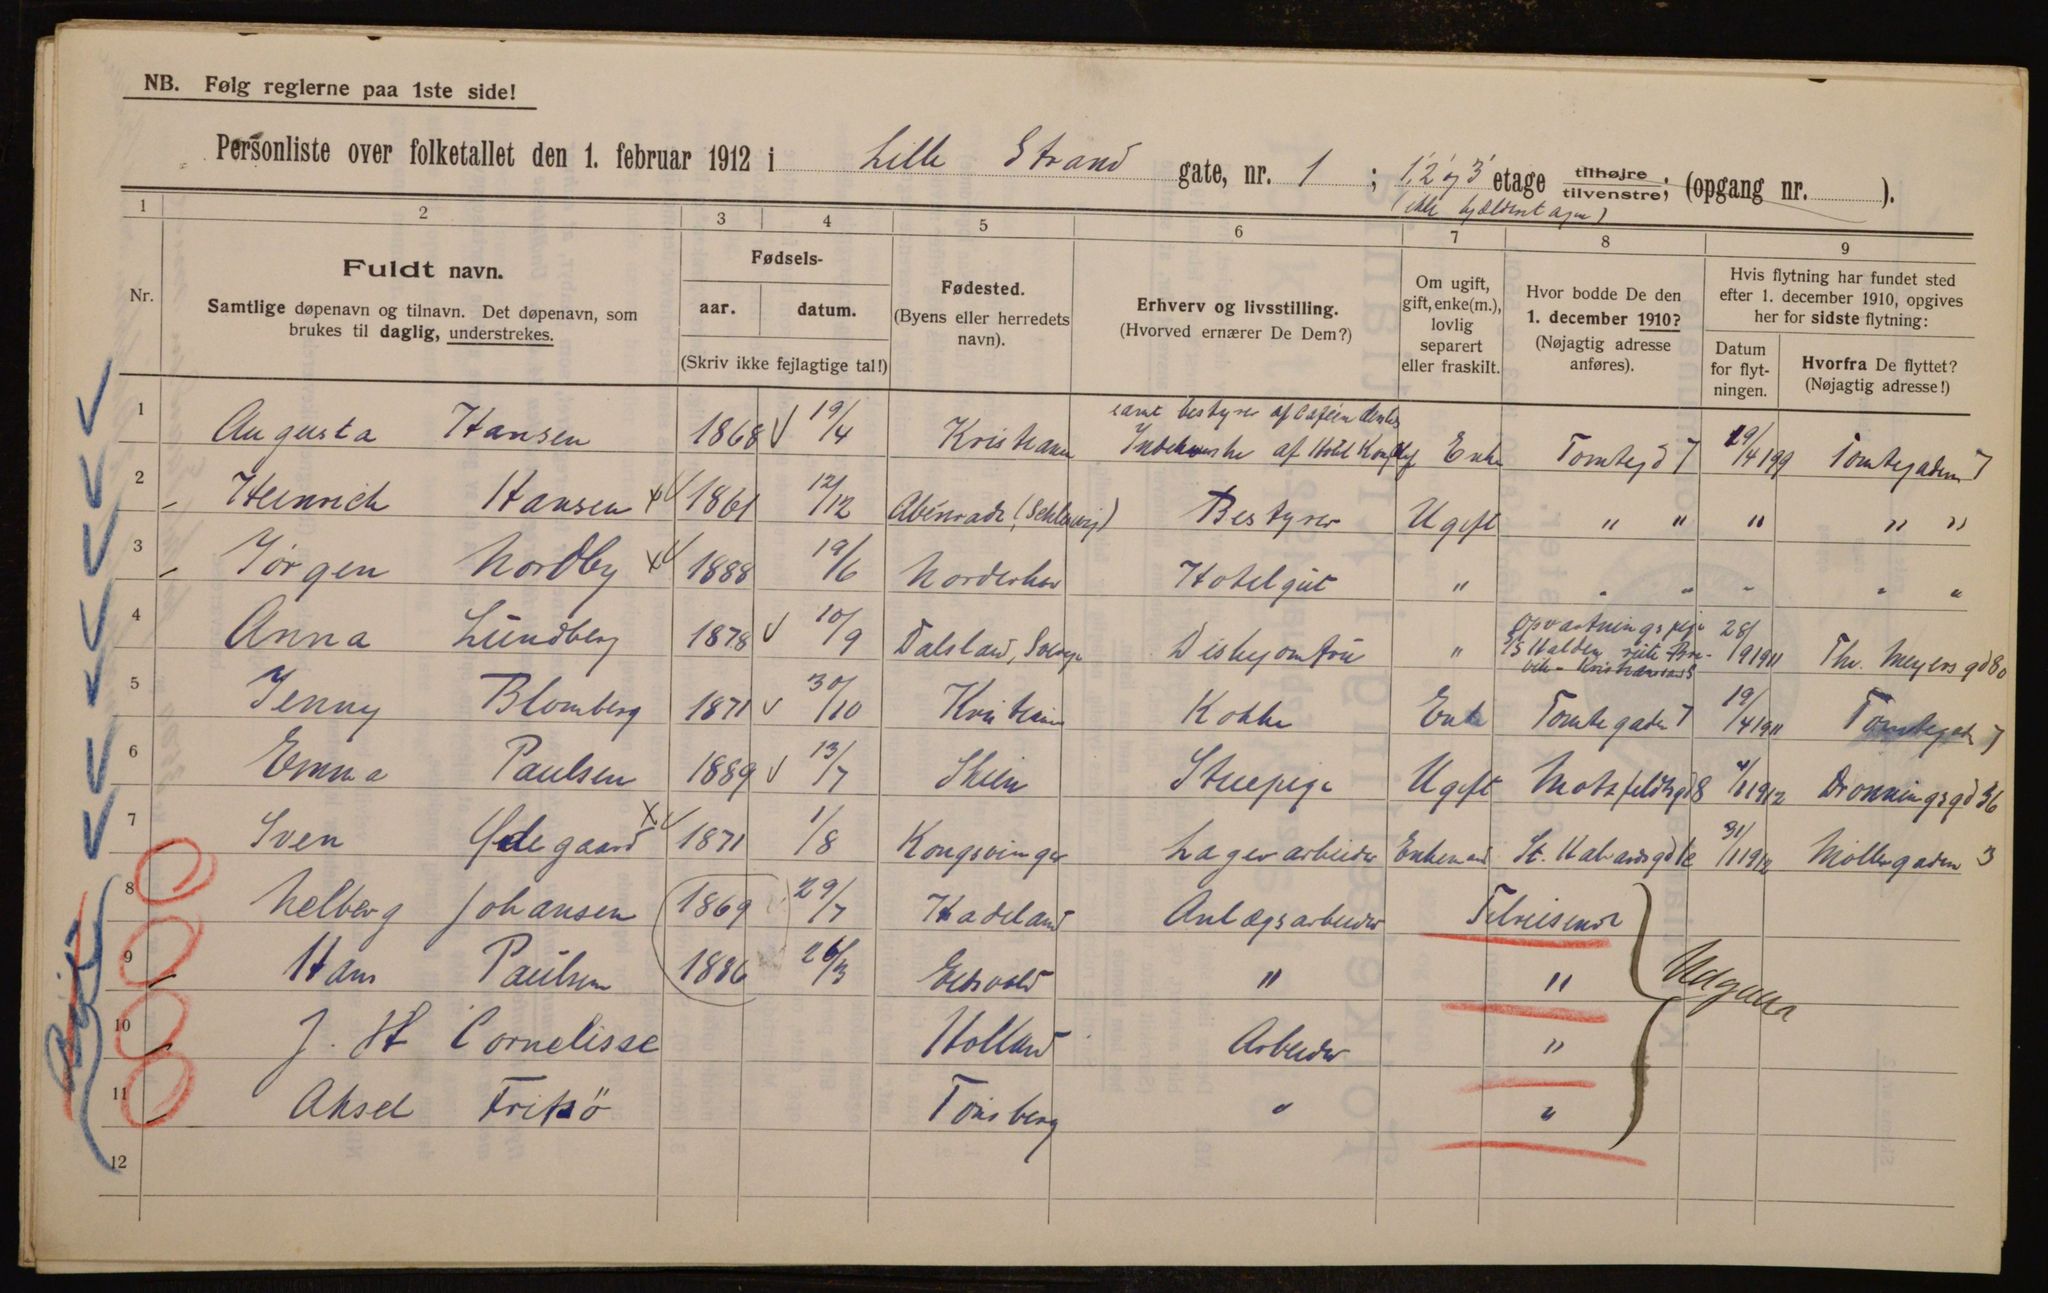 NB. Følg reglerne paa 1ste side!
Personliste over folketallet den 1. februar 1912 i Lille Strand gate, nr. 1 ; 1, 2 og 3 etage tilhøjre tilvenstre; (opgang nr. ).
1 2 3 4 5 6 7 8 9
Nr.
Fuldt navn.
Samtlige døpenavn og tilnavn. Det døpenavn, som
brukes til daglig, understrekes.
Fødsels-
aar. datum.
(Skriv ikke fejlagtige tal!)
Fødested.
(Byens eller herredets
navn).
Erhverv og livsstilling.
(Hvorved ernærer De Dem?)
Om ugift,
gift, enke(m.),
lovlig
separert
eller fraskilt.
Hvor bodde De den
1. december 1910?
(Nøjagtig adresse
anføres).
Hvis flytning har fundet sted
efter 1. december 1910, opgives
her for sidste flytning:
Datum
for flyt-
ningen.
Hvorfra De flyttet?
(Nøjagtig adresse!)
samt bestyrer af Cafeen
1 Augusta Hansen 1868 19/4 Kristiania af Hotel Enke Tomtegd 7 19/4 Tomtegaden 7
2 Heinrich Hansen 1861 12/12 Abenrade, (Schleswig) Bestyrer Ugift " " " " "
3 Jørgen Nordby 1888 19/6 Norderhov Hotelgut " " " " " "
4 Anna Lundberg 1878 10/9 Dalsland, Sverige Diskjomfru " Opvartningspige S/S Halden 28/9 1911 Thv. Meyers gd 80
5 Jenny Blomberg 1871 30/10 Kristiania Kokke Enke Tomtegaden 7 19/4 1911 Tomtegaden 7
6 Emma Paulsen 1889 13/7 Skien Stuepige Ugift Motzfeldtsgd 8 1/1 1912 Dronningsgd 36
7 Sven Ødegaard 1871 1/8 Kongsvinger Lagerarbeider Enkemand St. Halvardsgd 31/1 1912 Møllergaden 3
8 Johansen 1869 29/7 Hadeland Anlægsarbeider Tilreisende
9 Hans Paulsen 1886 26/3 Eidsvold " "
Udgaar
10 J. H Cornelisse Holland Arbeider "
11 Aksel Fritsö Tönsberg " "
12